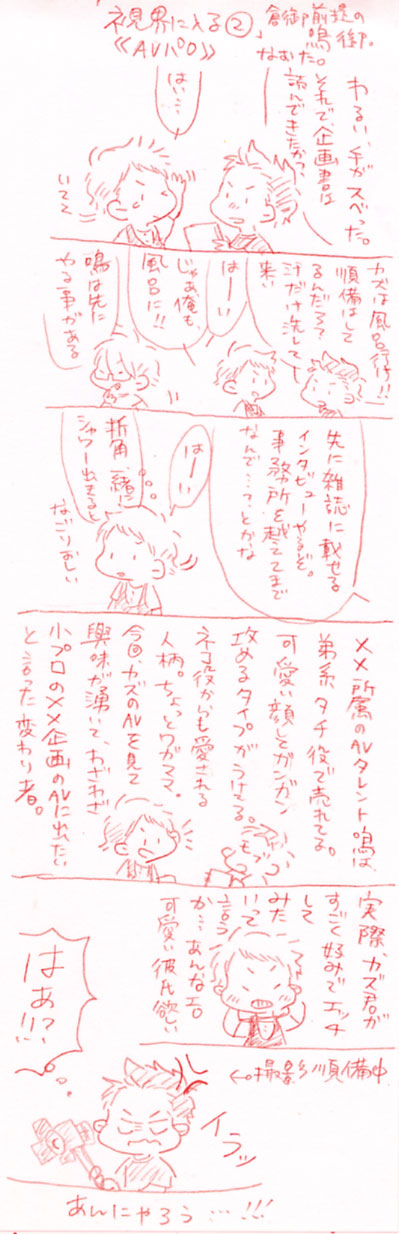 視界に入る②
《AVパロ》
倉御前提の
鳴御。
わるい、手が
スベった。
それで、企画書は
読んできたか?
なむた。」
はい…
いてて
カズは風呂行け!!
順備はして
るんだろ?
汗だけ流して
来い
はーい
じゃあ俺も、
風呂に!!
鳴は先に
やる事がある
先に雑誌に載せる
インタビューやるぞ。
事務所を越えてまで
なんで…?とかな
はーい
折角一緒に
シャワー出きると
なごりおしい
××所属のAVタレント鳴は、
弟系タチ役で売れてる。
可愛い顔してガンガン
攻めるタイプがうけてる。
ネコ役からも愛される
人柄。ちょっとワガママ。
今回、カズのAVを見て
興味が湧いて、わざわざ
小プロの××企画のAVに出たい
と言った変わり者。
モブ
実際、カズ君が
すごく好みでエッチ
して
みた
いて
言う
か…あんなエロ
可愛い彼氏欲しい
はぁ?!!
←撮影順備中
イラッ
あんにゃろう…!!!